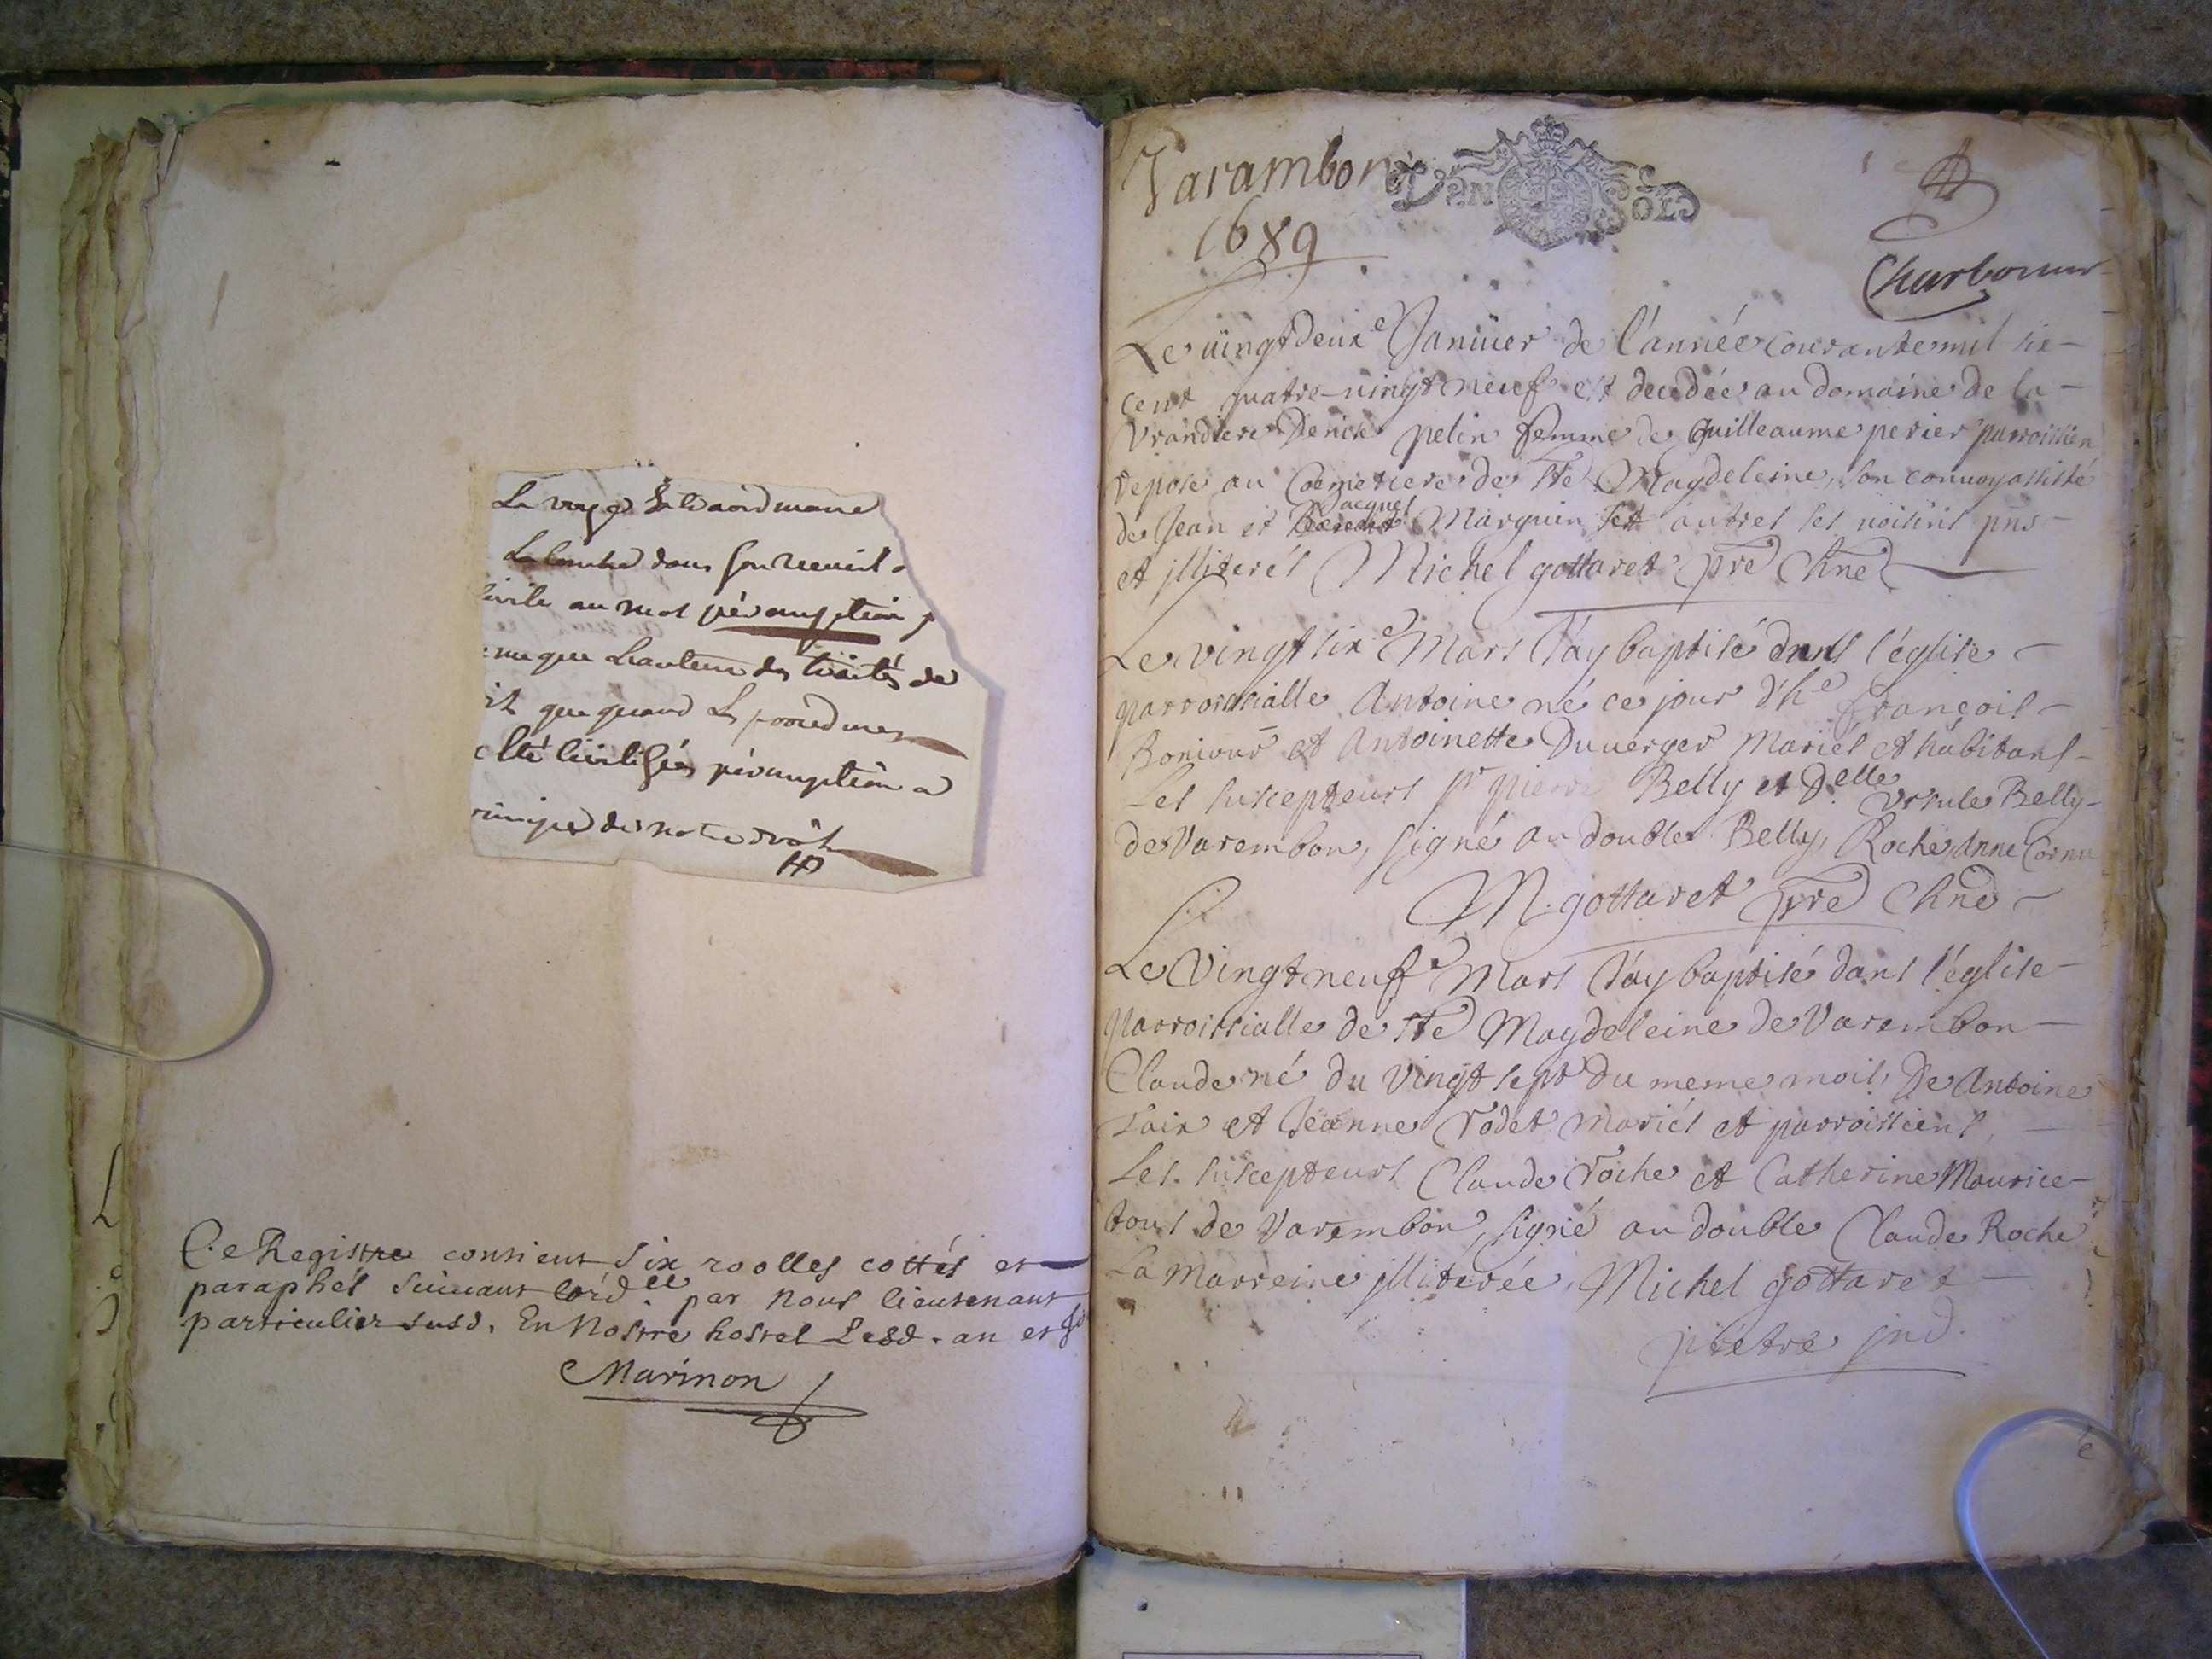 dans son recueil
au mot péremption
que Lauteur des traités de
que quand Les procedures
péremption a
de notre droit
Ce Registre contient six roolles cottés et
paraphés suivant lord.ce par nous lieutenant
particulier susd. En Nostre hostel Lesd. an et
Marinon
Varambon
1689
Charbonnier
Le vingtdeuxe Januier de l'année courante mil six
cent quatre-vingt neuf est decedée au domaine de la
Denise pelin femme de Guilleaume perier parroissien
repose au Coemetiere de Ste Magdeleine, son convoy assisté
de Jean et Jacques Marguin et autres ses voisins pns
et jlliterés Michel gottaret pre
Le vingt sixe Mars J'ay baptisé dans l'église
parroissialle Antoine né ce jour d'he François
Boniour et Antoinette Duuerger Mariés et habitans
Les suscepteurs sr pierre Belly et Delle Vrsule Belly
de Varembon, signé au double Belly, Roche, Anne Cornu
M. gottaret pre
Le Vingtneufe Mars J'ay baptisé dans l'église
parroissialle de Ste Magdeleine de Varembon
Claude né du Vingt sept du meme mois, De Antoine
et Jeanne rodet Mariés et parroissiens,
Les suscepteurs Claude roche et Catherine Maurice
tous de Varembon, signé au double Claude Roche
La Marreine jlliterée, Michel gottaret
prêtre jnd.